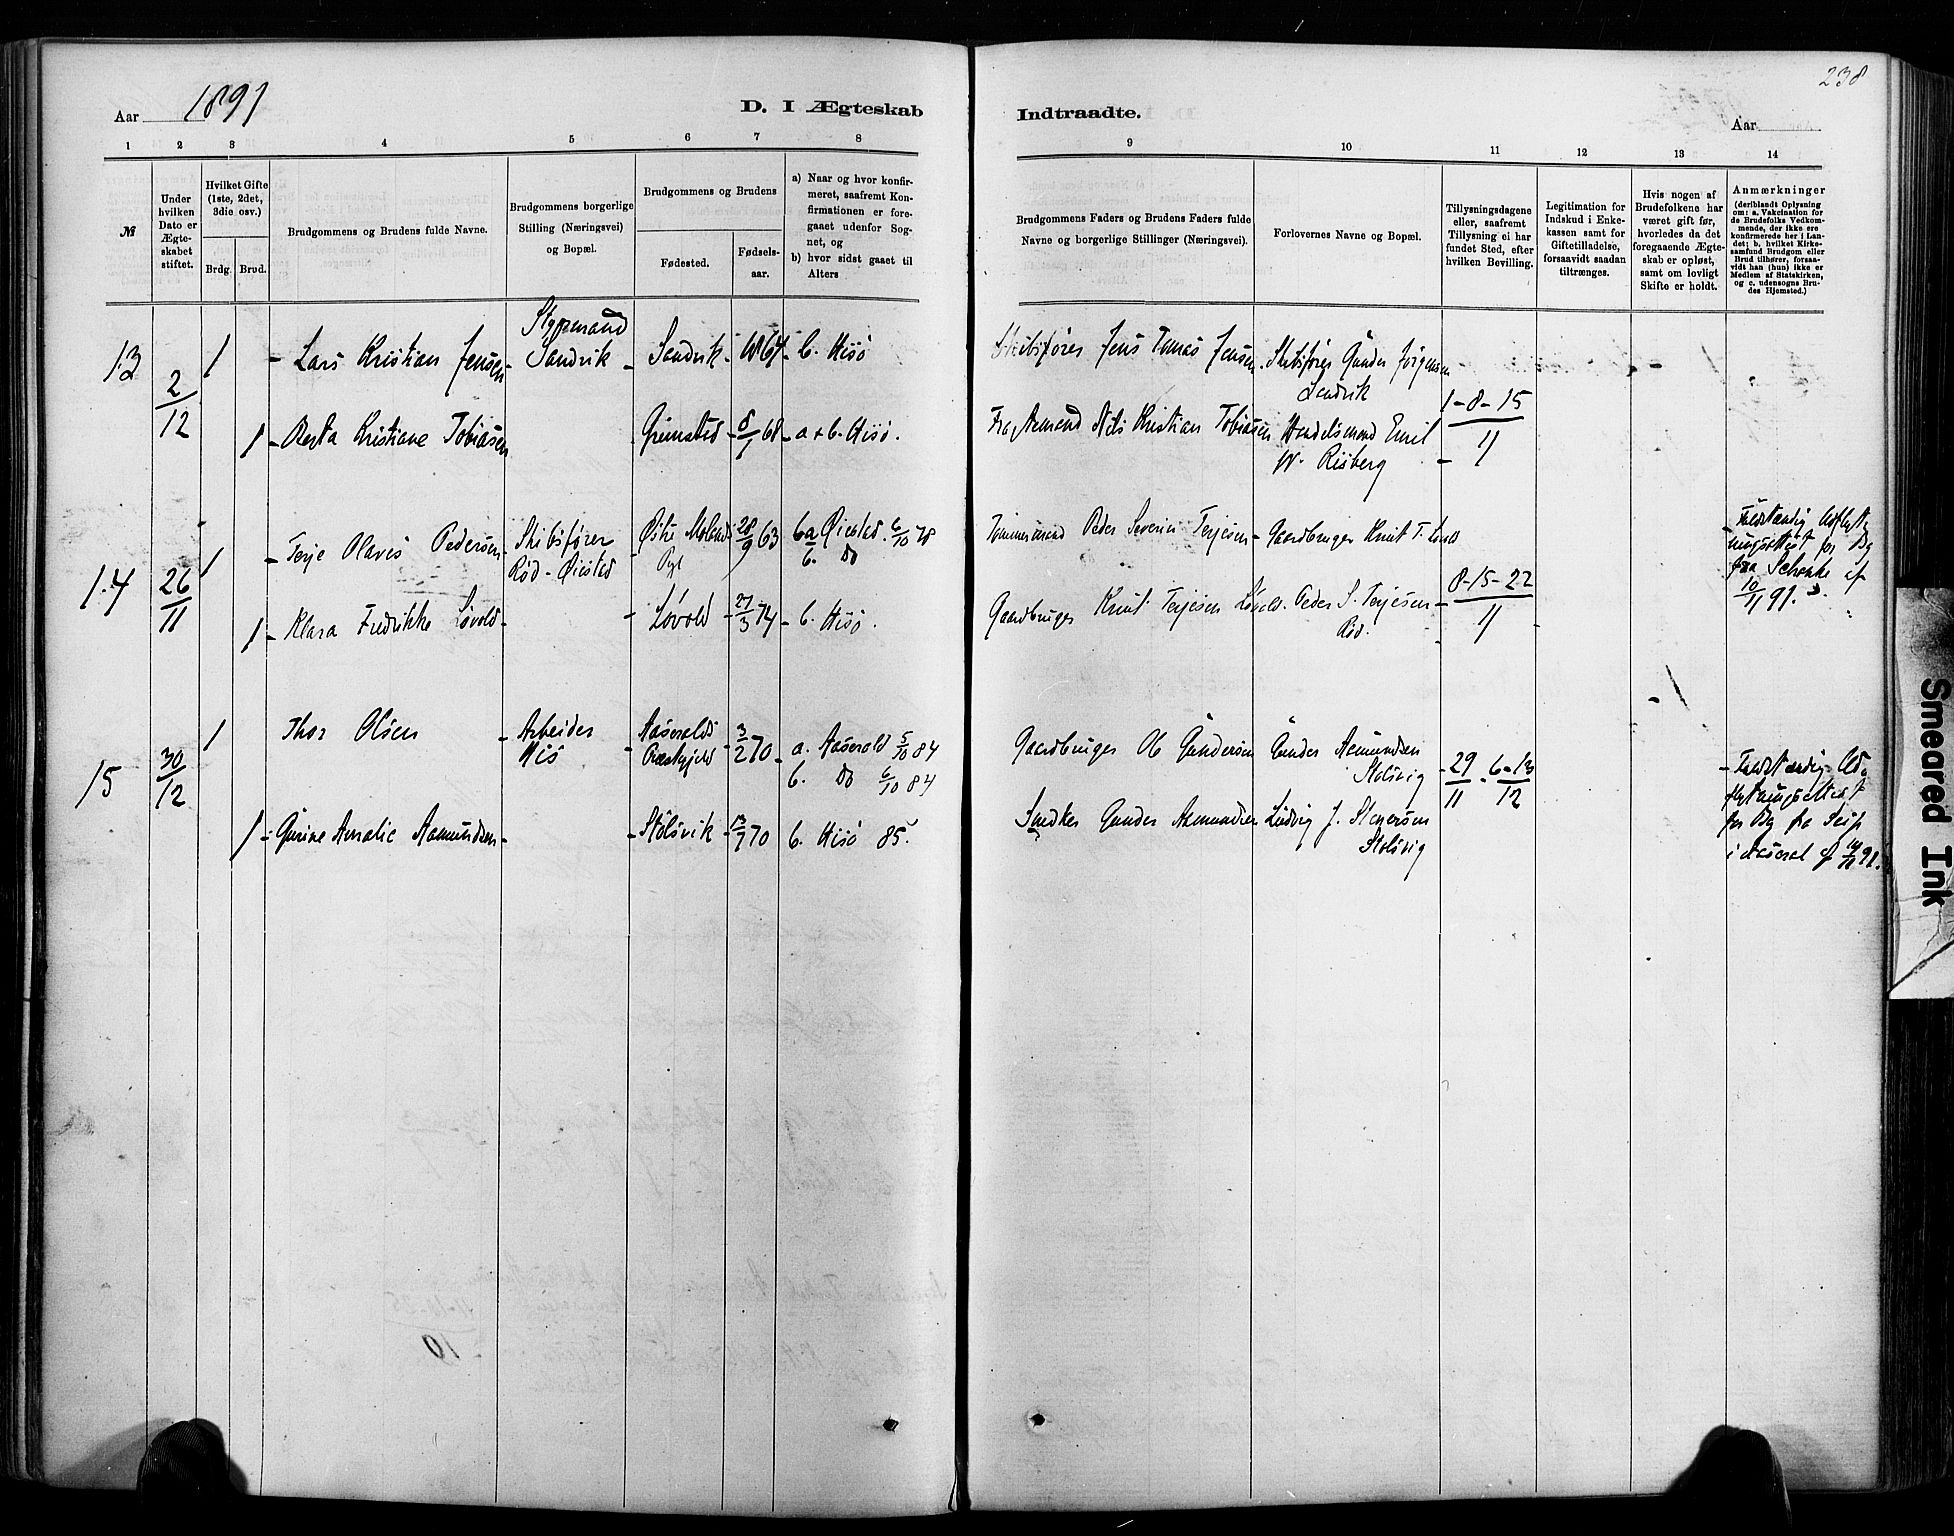 238
Aar 1891
D. I Ægteskab Indtraadte.
Aar
1 2 3 4 5 6 7 8 9 10 11 12 13 14
№
Under hvilken Dato er Ægteskabet stiftet.
Hvilket Gifte (1ste, 2det, 3die osv.)
Brdg. Brud.
Brudgommens og Brudens fulde Navne.
Brudgommens borgerlige Stilling (Næringsvei) og Bopæl.
Brudgommens og Brudens
Fødested.
Fødselsaar.
a) Naar og hvor konfirmeret, saafremt Konfirmationen er foregaaet udenfor Sognet, og
b) hvor sidst gaaet til Alters
Brudgommens Faders og Brudens Faders fulde Navne og borgerlige Stillinger (Næringsvei).
Forlovernes Navne og Bopæl.
Tillysningsdagene eller, saafremt Tillysning ei har fundet Sted, efter hvilken Bevilling.
Legitimation for Indskud i Enkekassen samt for Giftetilladelse, forsaavidt saadan tiltrænges.
Hvis nogen af Brudefolkene har været gift før, hvorledes da det foregaaende Ægteskab er opløst, samt om lovligt Skifte er holdt.
Anmærkninger (deriblandt Oplysning om: a. Vakcination for de Brudefolks Vedkommende, der ikke ere konfirmerede her i Landet; b. hvilket Kirkesamfund Brudgom eller Brud tilhører, forsaavidt han (hun) ikke er Medlem af Statskirken, og c. udensogns Brudes Hjemsted.)
13 2/12 1 - Lars Kristian Jensen - Styrmand Sandvik - Sandvik - 64 - b. Hisø
Skibsfører Jens Tomas Jensen - Skibsfører Gunder Jørgensen Sandvik
1 - Berta Kristiane Tobiasen Grimstad - 8/1 68 - a + b. Hisø.
Nils Kristian Tobiasen Handelsmand Emil W. Risberg - 1-8-15/11
14 26/11 1 - Terje Olavis Pedersen - Skibsfører Rød - Øiestad - Østre Moland 28/9 63 a Øiestad 6/10 78 b. Do
Tømmermand Peder Severin Terjesen - Gaardbruger Knut T.
1 - Klara Fredrikke Løvold - - Løvold - 27/3 74 - b. Hisø.
Gaardbruger Knut Terjesen Løvold - Peder S. Terjesen Rød. - 8-15-22/11
fra Schanke af 10/11 91.
15 30/12 1 Thor Olsen - Arbeider His - Aaseralds 3/2 70 - a. Aaserald 5/10 84 b. Do 6/10 84
Gaardbruger Ole Gundersen Gunder Asmundsen Stølsvig
1 - Gurine Amalie Aasmundsen - - Stølsvik - 13/7 70 b. Hisø 85.
Snedker Gunder Asmundsen Ludvig J. Stenersen Stølsvig - 29/11 - 6-13/12
- Fuldstændig Udflytningsattest for Bg fra Seip i Aaseral af 91.
Smeared Ink